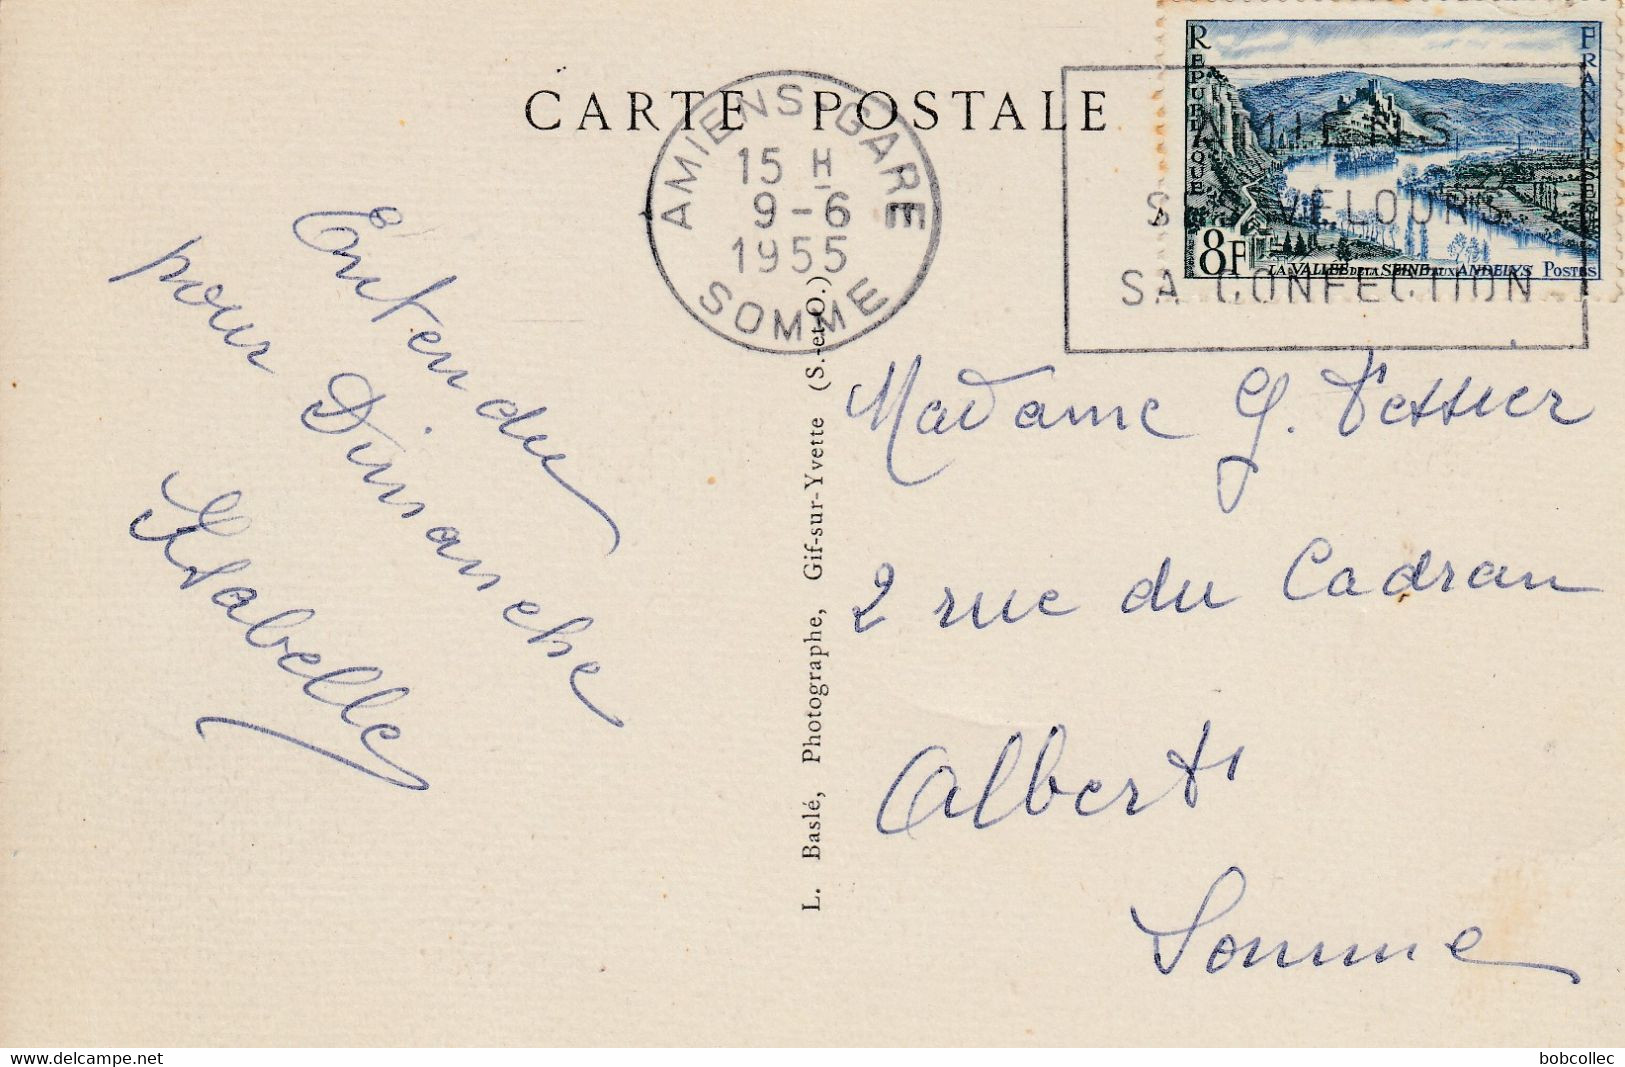 CARTE POSTALE
AMIENS GARE
15 H
9-6
1955
SOMME
AMIENS
SES VELOURS
SA CONFECTION
REPUBLIQUE FRANCAISE
8F LA VALLEE DE LA SEINE AUX ANDELYS POSTES
Entendu
pour Dimanche
Isabelle
L. Baslé, Photographe, Gif-sur-Yvette (S.-et-O.)
Madame G. Tessier
2 rue du Cadran
Albert
Somme
https://www.delcampe.net
bobcollec